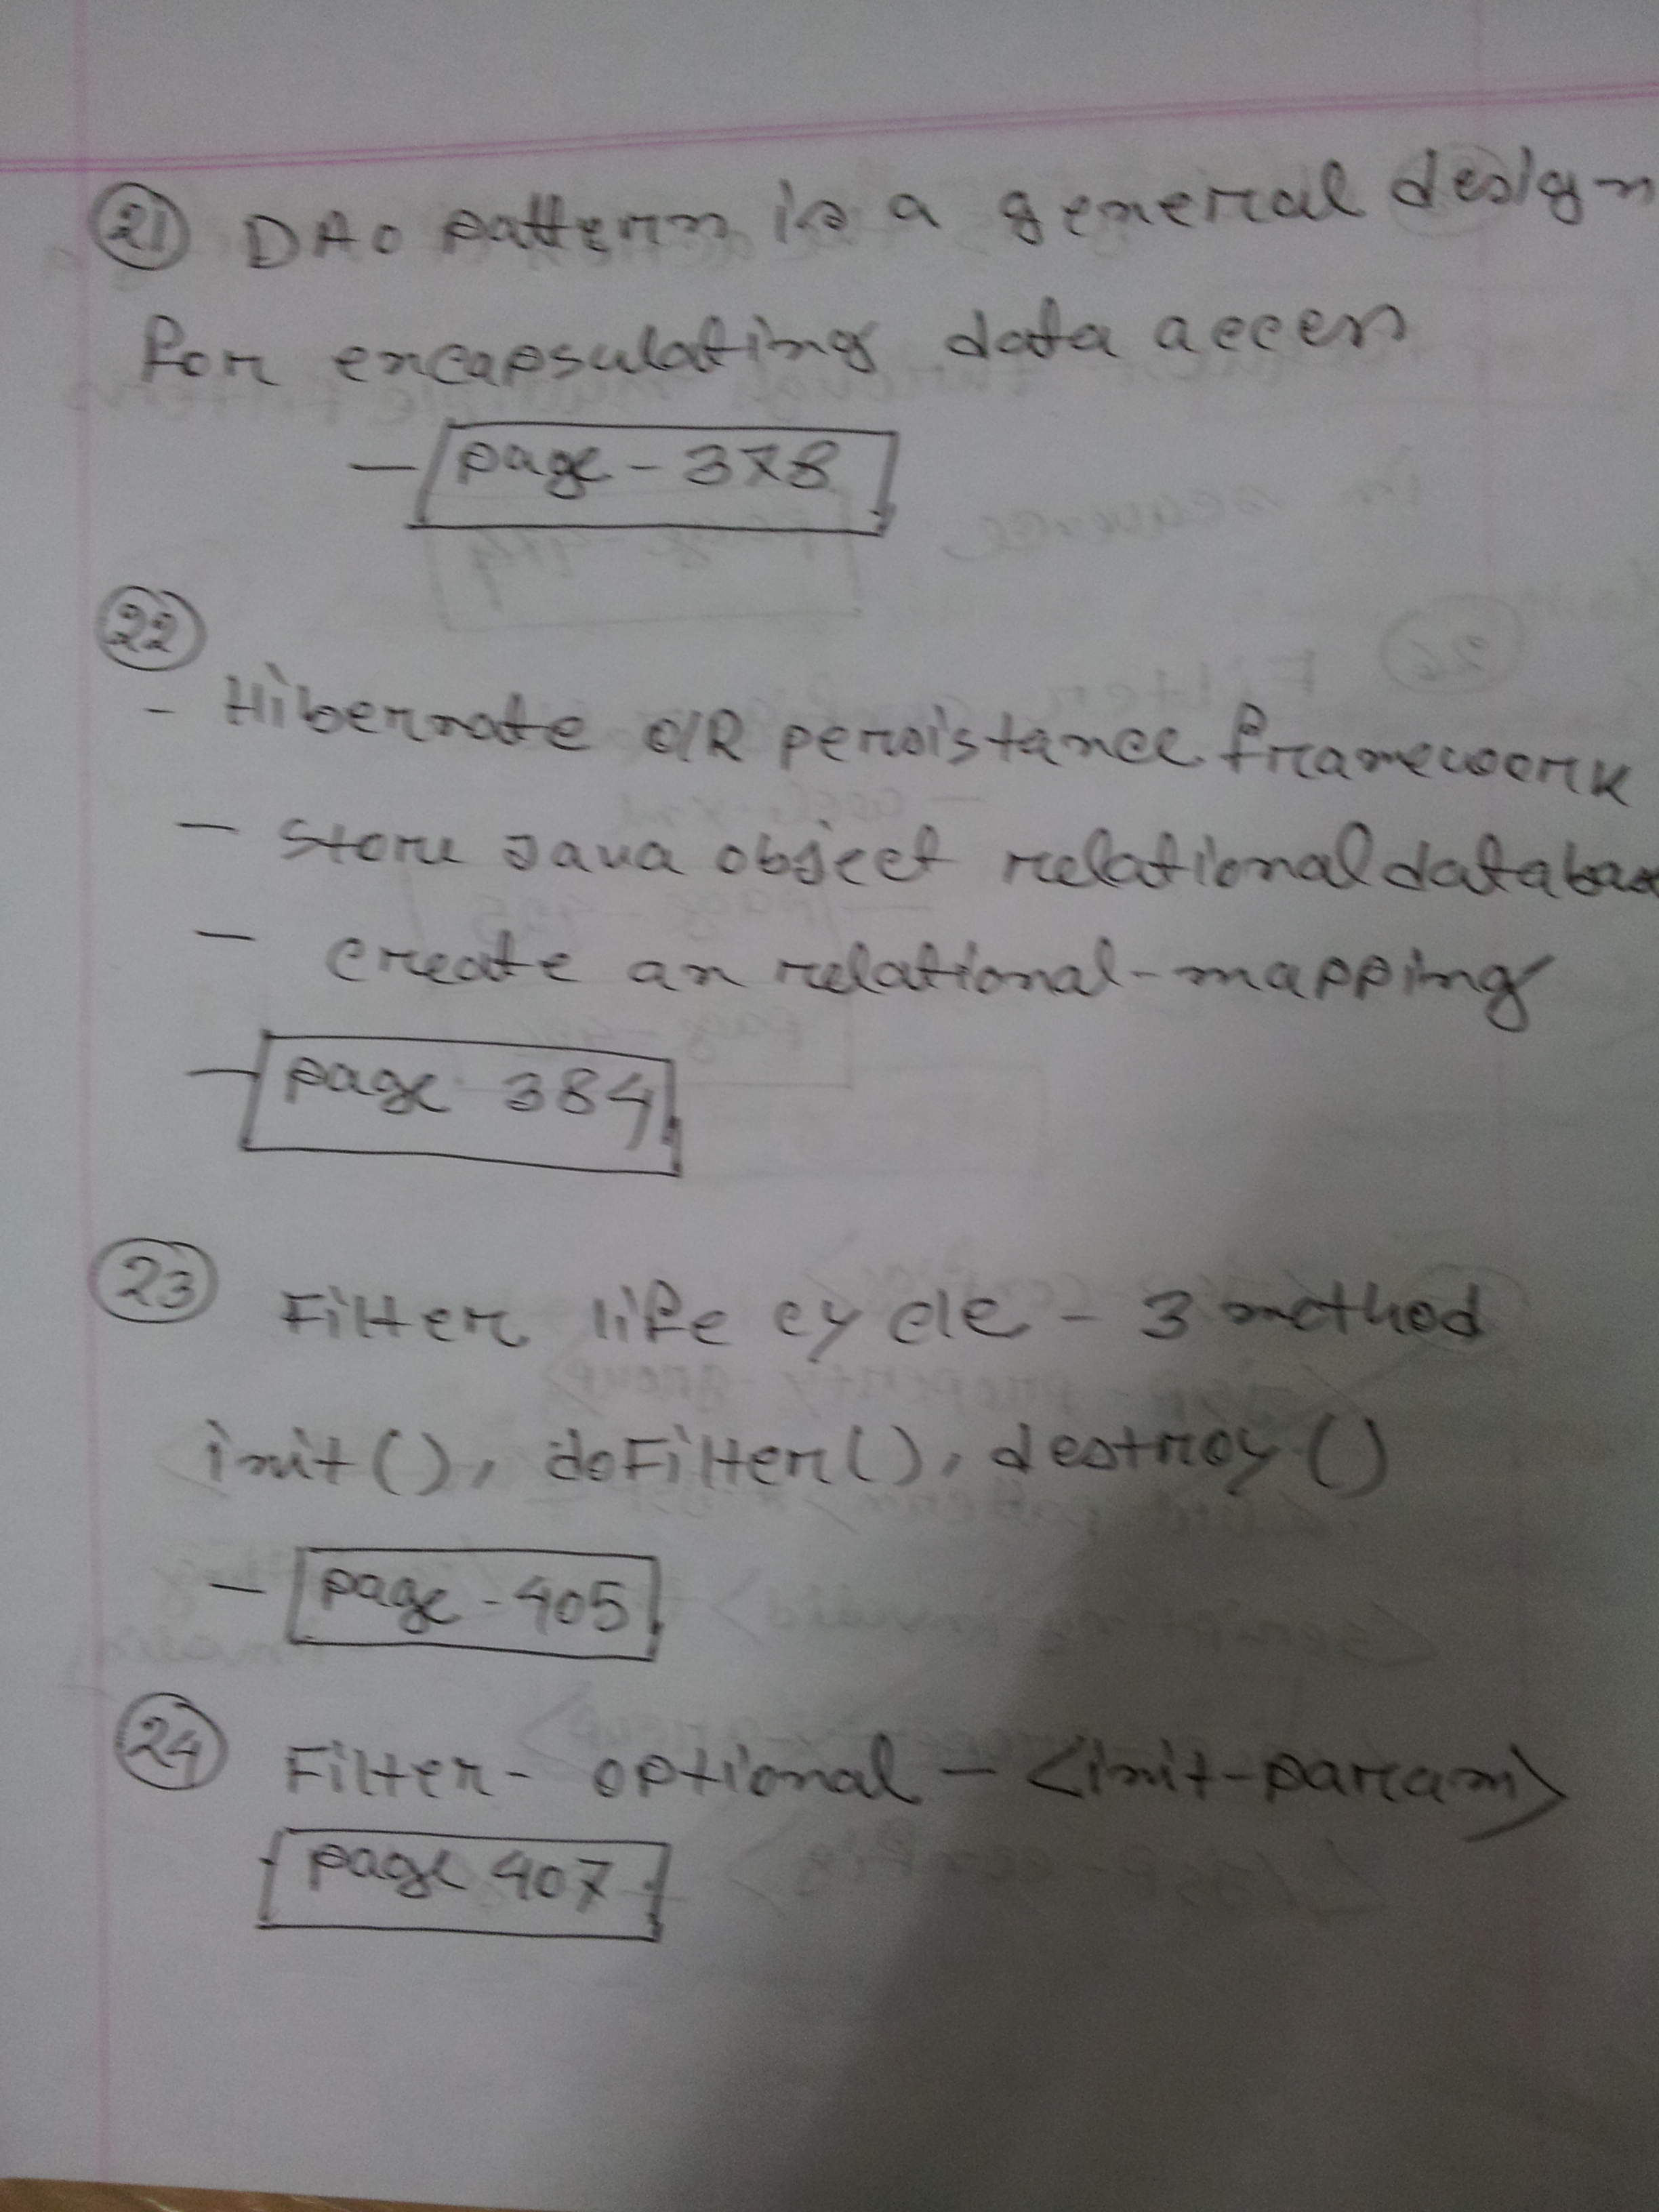 21 DAO pattern is a general design
for encapsulating data access
— page - 378
22
- Hibernate O/R persistance framework
— store Java object relational database
— create an relational-mapping
— page 384
23 Filter life cycle - 3 method
init(), doFilter(), destroy()
— page - 405
24 Filter - optional - <init-param>
page 407